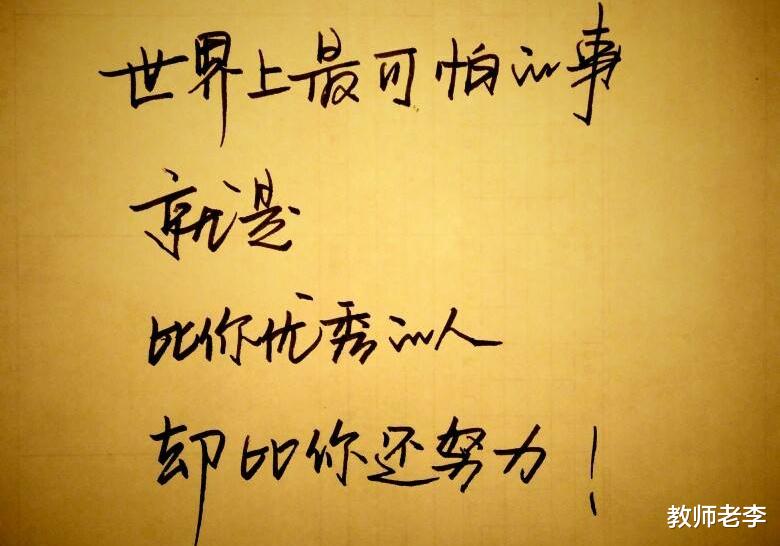 世界上最可怕的事
就是
比你优秀的人
却比你还努力！
教师老李